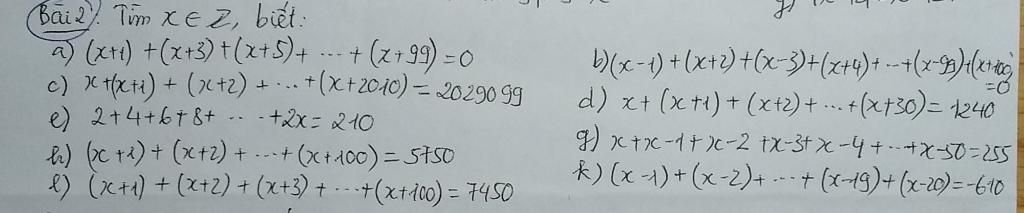 Bài 2). Tìm x ∈ Z, biết:
a) (x+1) + (x+3) + (x+5) + ... + (x+99) = 0
b) (x-1) + (x+2) + (x-3) + (x+4) + ... + (x-99) + (x+100) = 0
c) x + (x+1) + (x+2) + ... + (x+2010) = 2029099
d) x + (x+1) + (x+2) + ... + (x+30) = 1240
e) 2+4+6+8+ ... +2x = 210
g) x+x-1+x-2+x-3+x-4+...+x-50=255
h) (x+1) + (x+2) + ... + (x+100) = 5750
k) (x-1) + (x-2) + ... + (x-19) + (x-20) = -610
l) (x+1) + (x+2) + (x+3) + ... + (x+100) = 7450